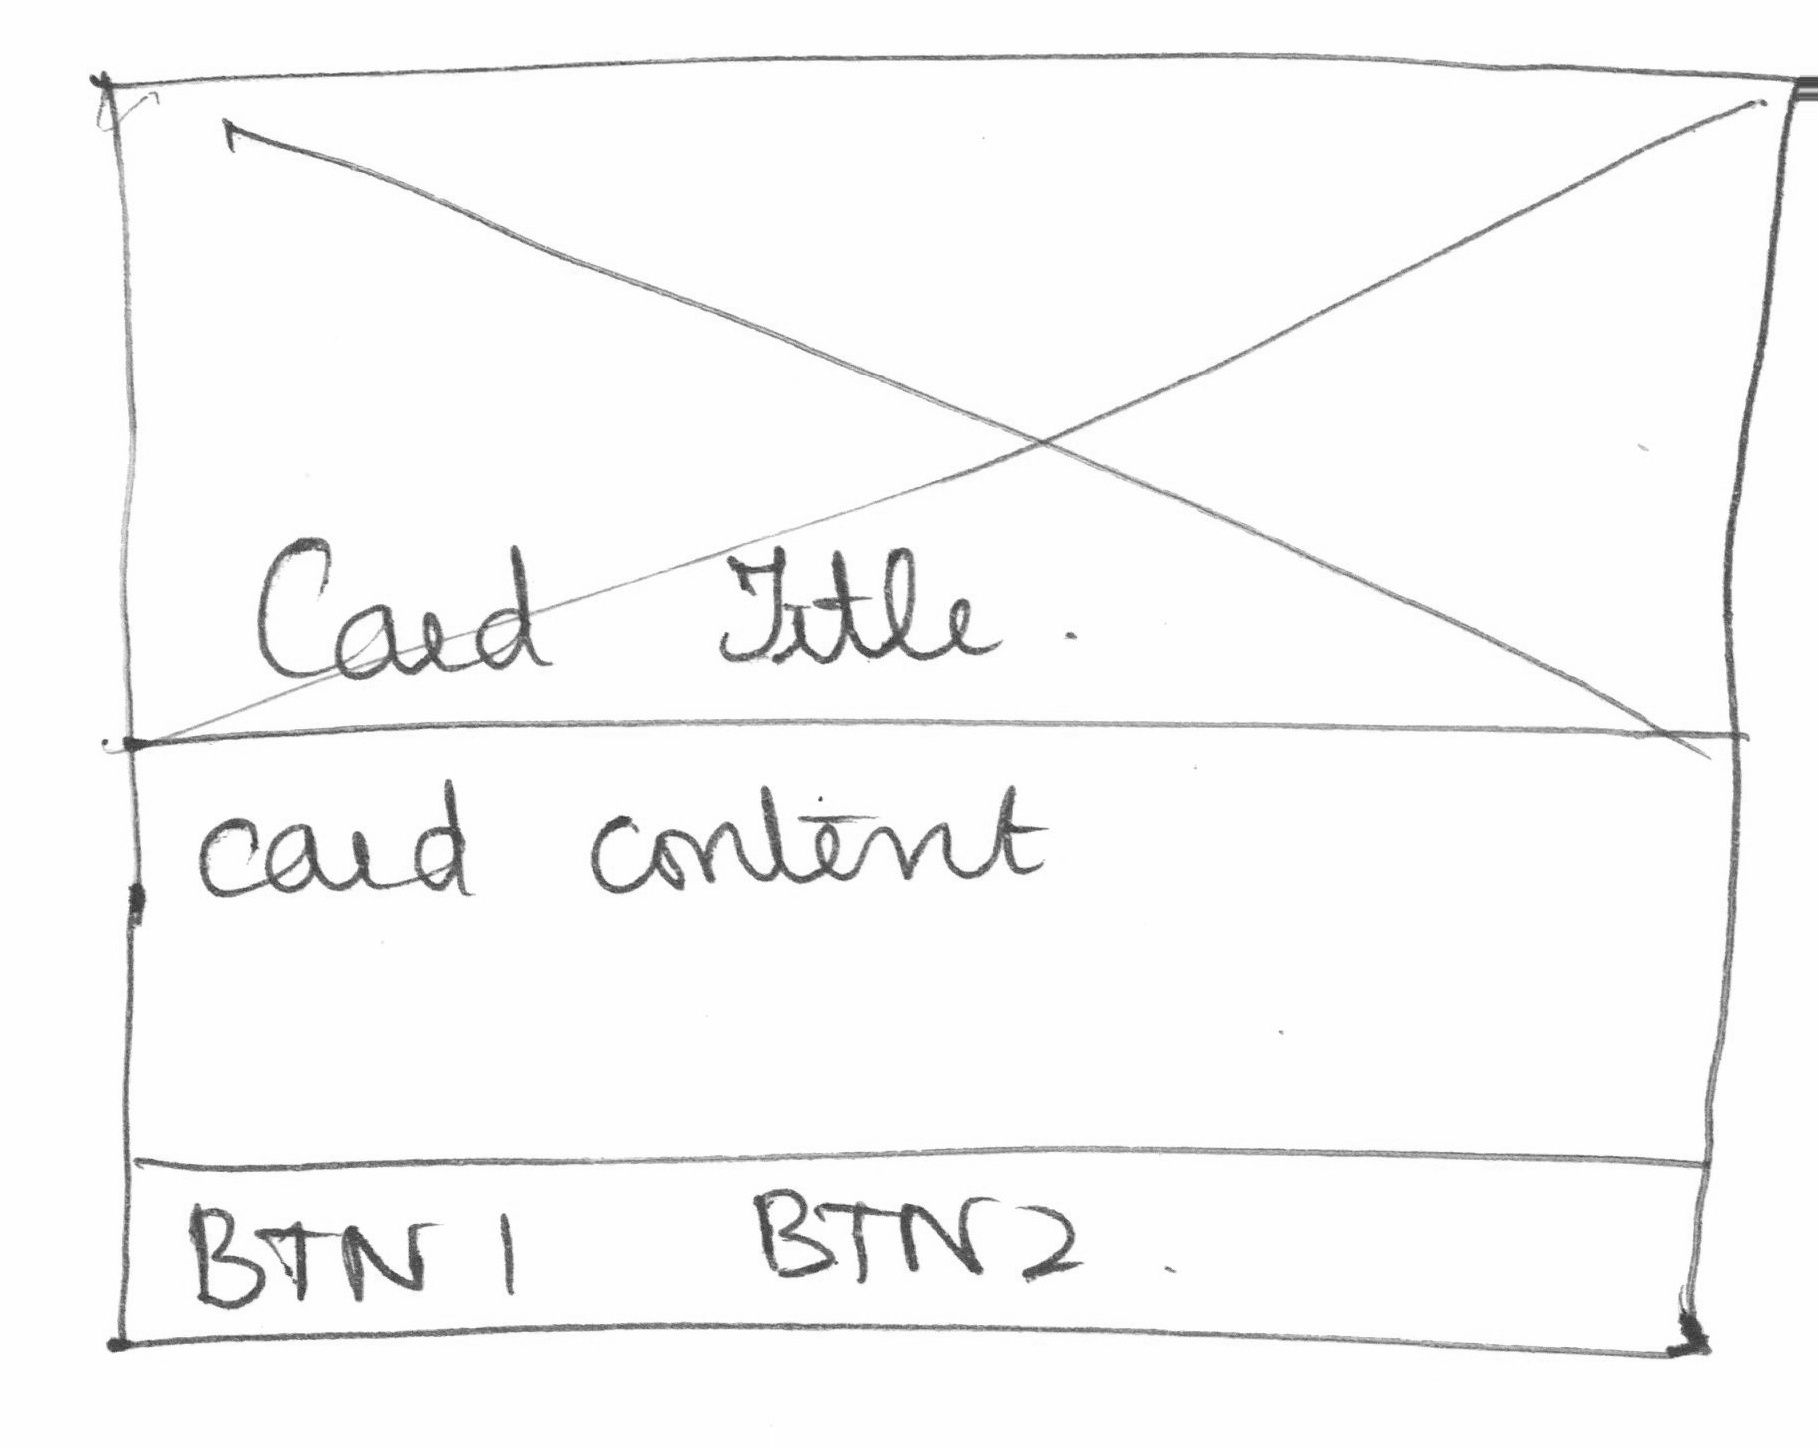 Card Title.
card content
BTN 1 BTN2.